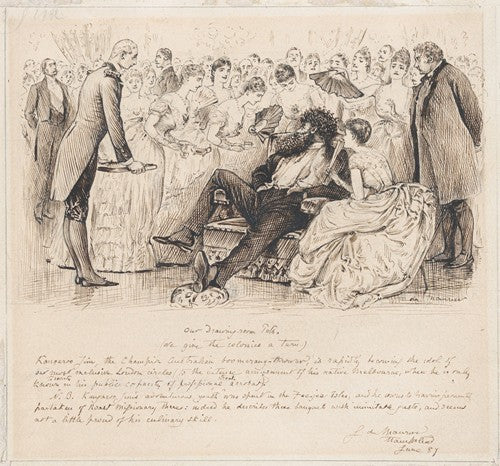 du Maurier
Our Drawing-room Pets.
(We give the colonies a turn)
Kangaroo Jim the Champion Australian boomerang-thrower is rapidly becoming the idol of
our most exclusive London circles, to the intense amusement of his native Melbourne, where he is only
known in his public capacity of professional acrobat.
N. B. Kangaroo Jim's adventurous youth was spent in the Feejee Isles, and he owns to having frequently
partaken of Roast Missionary there; indeed he describes these banquets with inimitable gusto, and seems
not a little proud of his culinary skill.
du Maurier
Hampstead
June 87